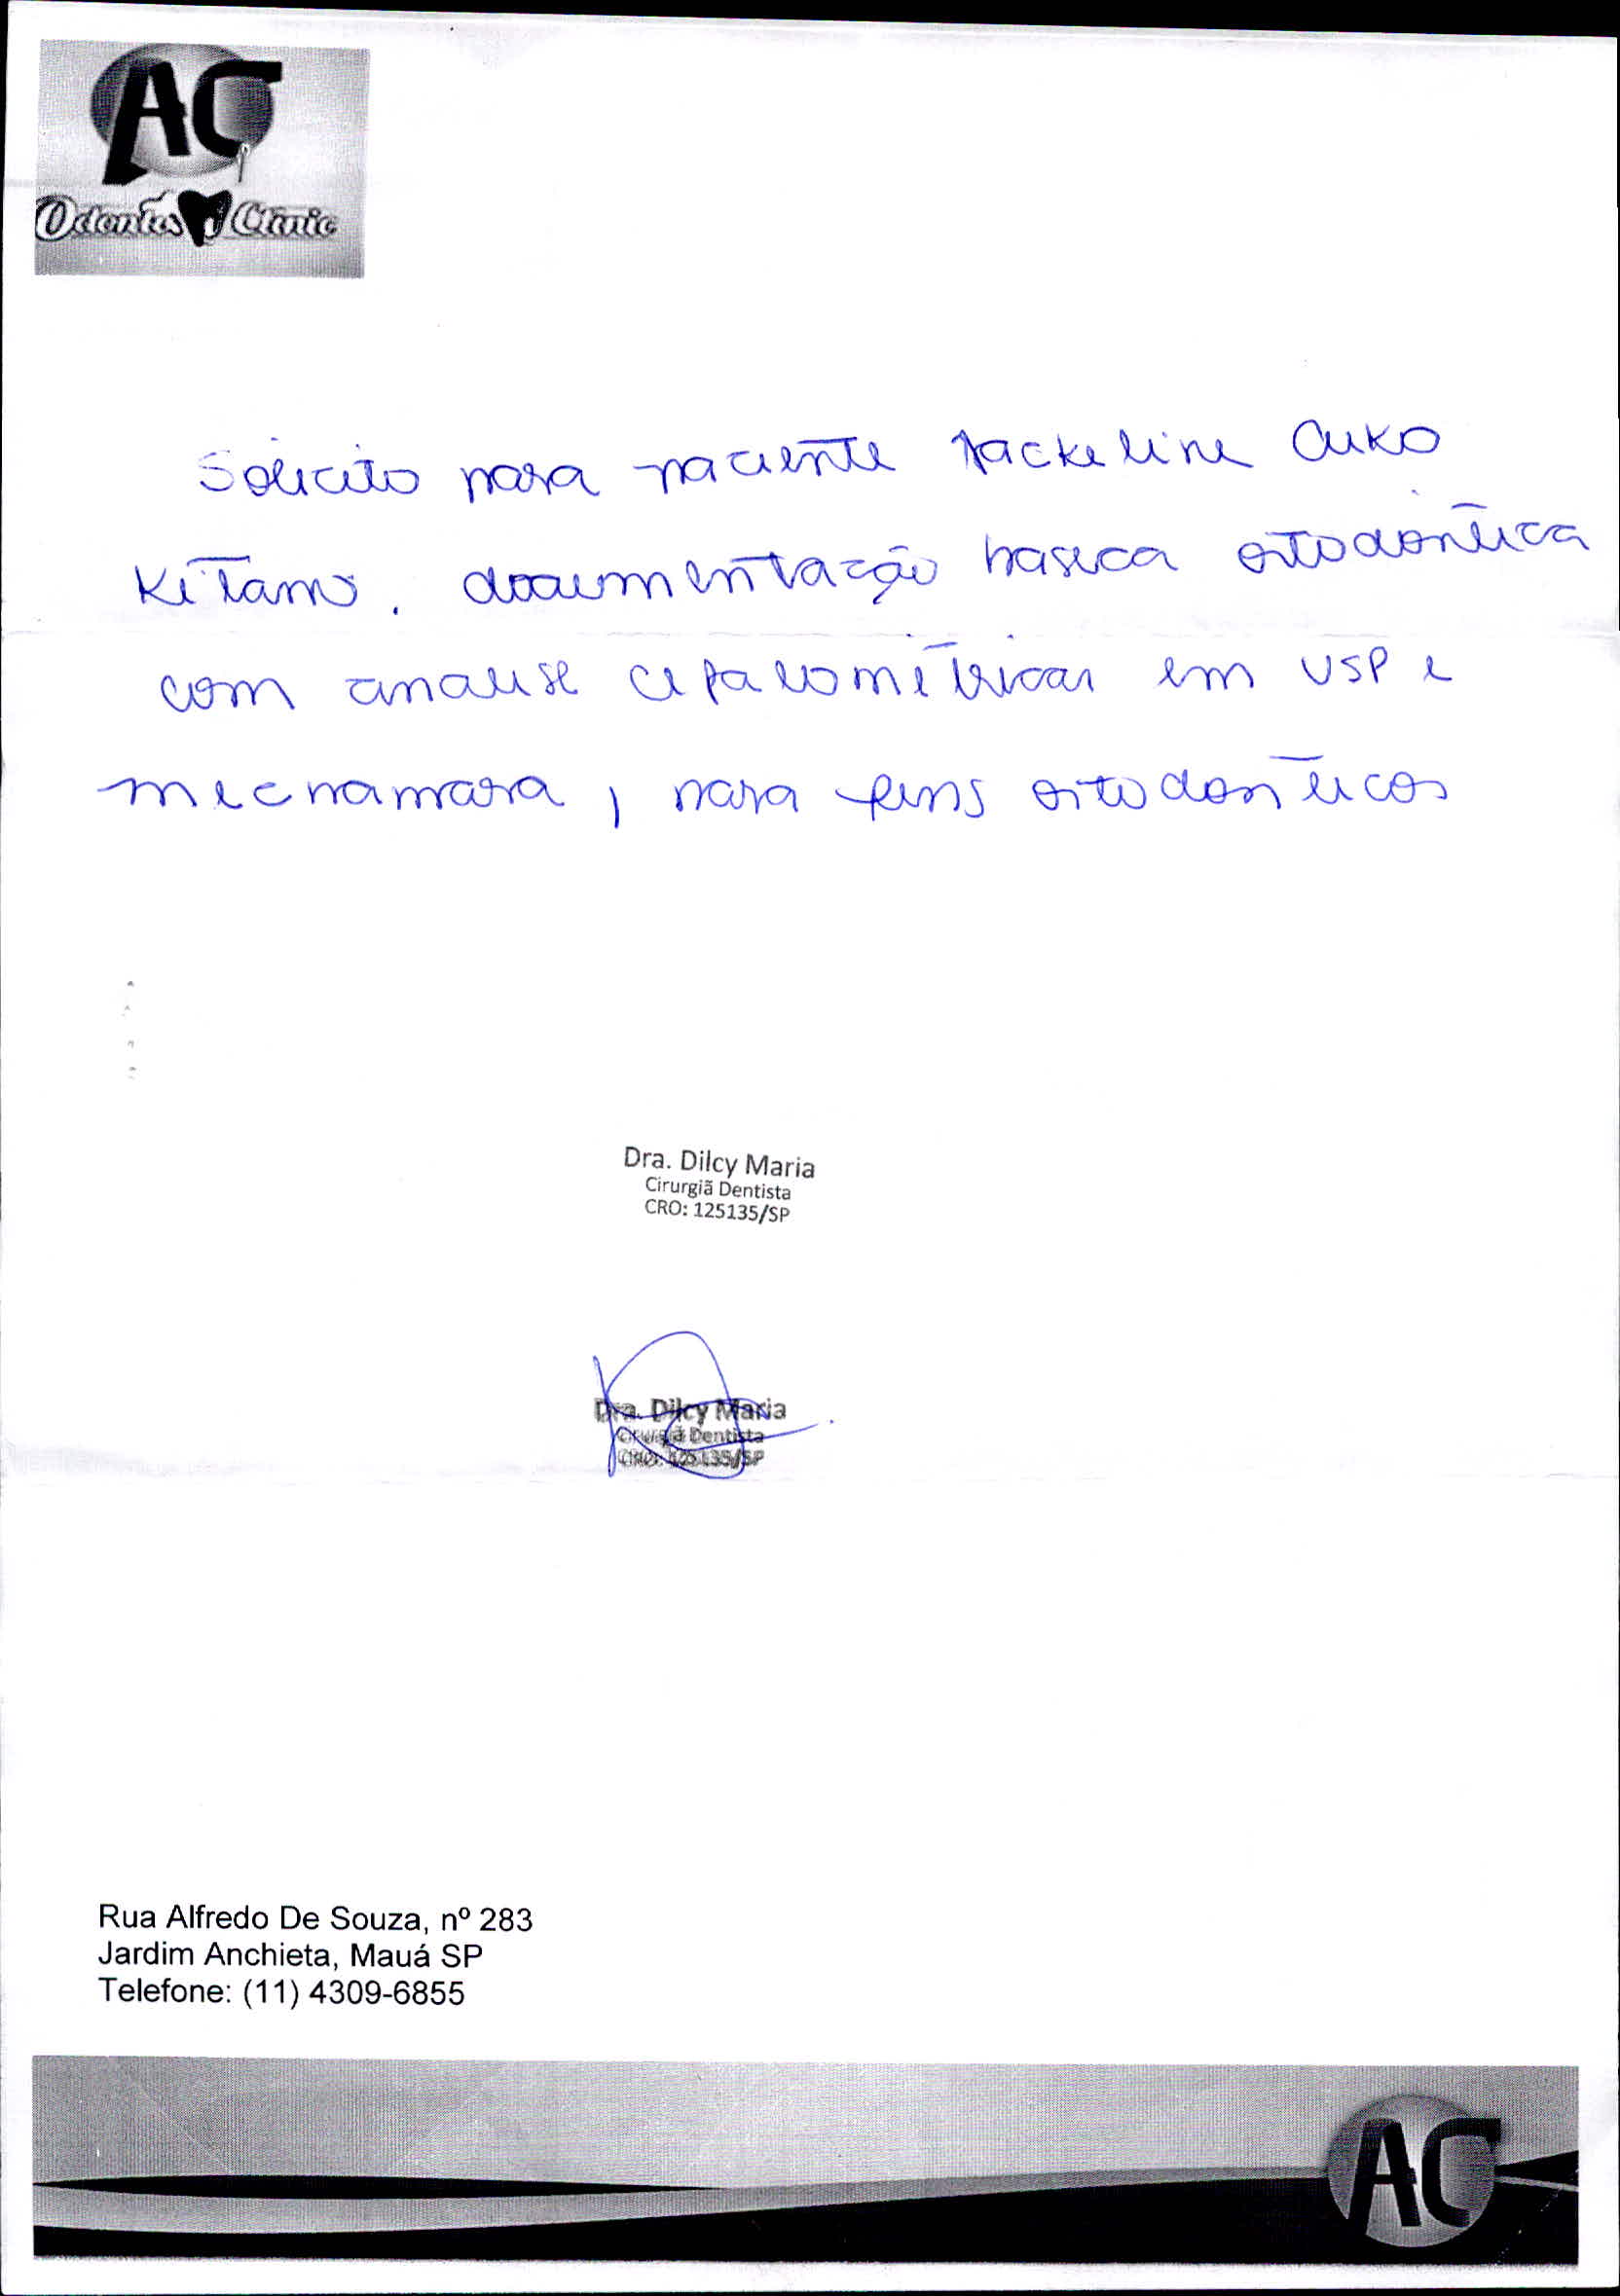 AC
Odontos Clinic
Solicito para paciente Jackeline Aiko
Kitano. documentação basica ortodontica
com analise cefalometricas em USP e
mecnamara, para fins ortodonticos
Dra. Dilcy Maria
Cirurgiã Dentista
CRO: 125135/SP
Dra. Dilcy Maria
Cirurgiã Dentista
CRO: 125135/SP
Rua Alfredo De Souza, nº 283
Jardim Anchieta, Mauá SP
Telefone: (11) 4309-6855
AC